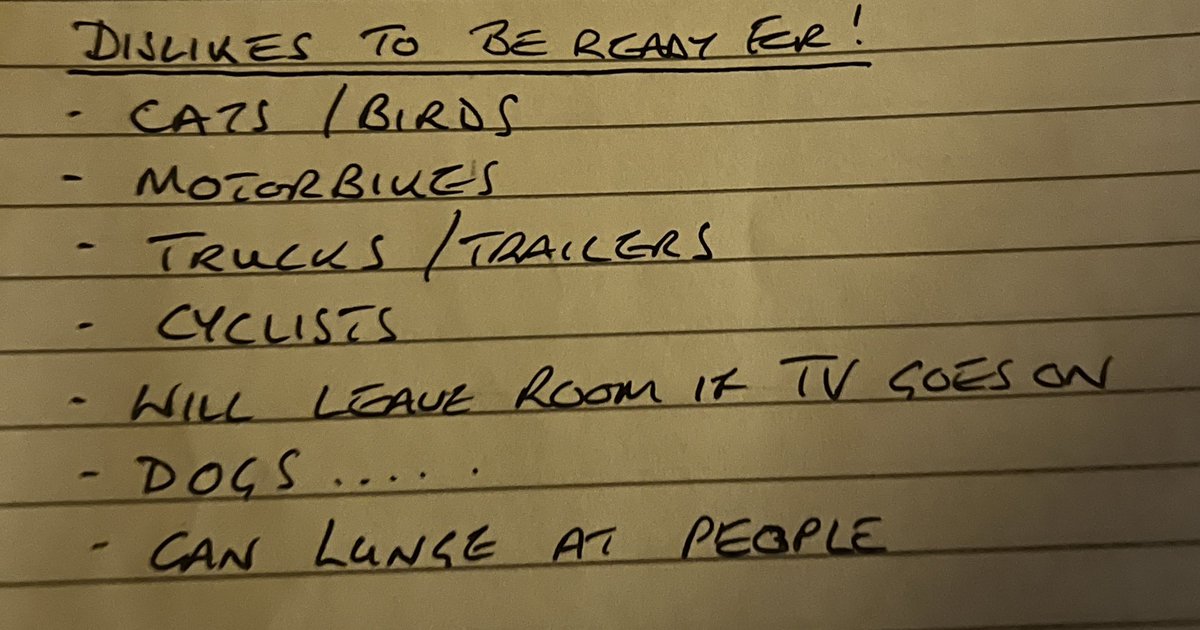 DISLIKES TO BE READY FER!
- CATS / BIRDS
- MOTORBIKES
- TRUCKS / TRAILERS
- CYCLISTS
- WILL LEAVE ROOM IF TV GOES ON
- DOGS .....
- CAN LUNGE AT PEOPLE